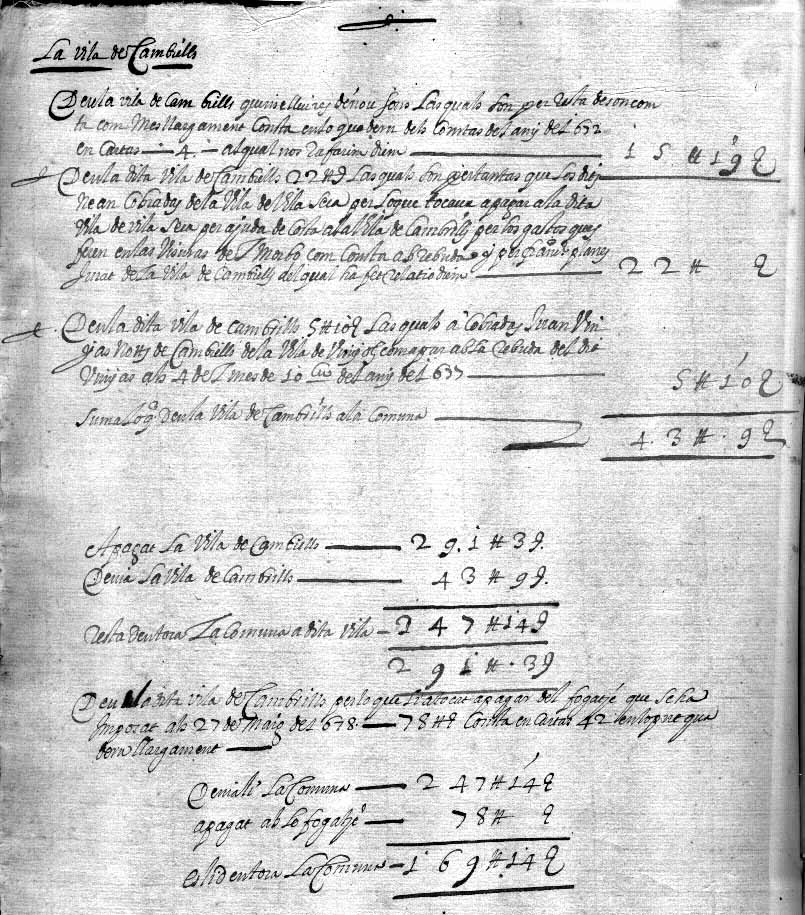 La Vila de Cambrills
Deu la vila de Cambrills Las quals son per resta de son com
ta com Mes llargament Consta en lo quadern dels Comtes del any del 672
en Cartas — 4 — al qual nos rafarim dium — 15 ₶ 19 ₰
Deu la dita Vila de Cambrills 22 ₶ ₰ Las quals son per tantas que Los dits
ne an Cobradas de la Vila de Vila Seca per lo que tocava a pagar a la dita
Vila de Vila Seca per ajuda de Costa a la Vila de Cambrills per los gastos que
feren en las de Morbo com Consta ab rebuda y per planes
Jurat de la Vila de Cambrills del qual ha fet relatio dium — 22 ₶ ₰
Deu la dita Vila de Cambrills 5 ₶ 10 ₰ Las quals a Cobradas Juan Vin
yas de Cambrills de la Vila de ab la rebuda del dit
Vinyas als 4 del mes de del any del 677 — 5 ₶ 10 ₰
Suma Lo q Deu la Vila de Cambrills a la Comuna — 43 ₶ 9 ₰
Apagat La Vila de Cambrills — 291 ₶ 3 ₰
Devia La Vila de Cambrills — 43 ₶ 9 ₰
resta deutora La Comuna a dita Vila — 247 ₶ 14 ₰
291 ₶ 3 ₰
Deu la dita vila de Cambrills per lo que li a tocat a pagar del fogatje que se ha
Imposat als 27 de Maig del 678 — 78 ₶ ₰ Consta en Cartas 42
llargament —
Deviali La Comuna — 247 ₶ 14 ₰
apagat ab Lo fogatje — 78 ₶ ₰
Es li deutora La Comuna — 169 ₶ 14 ₰